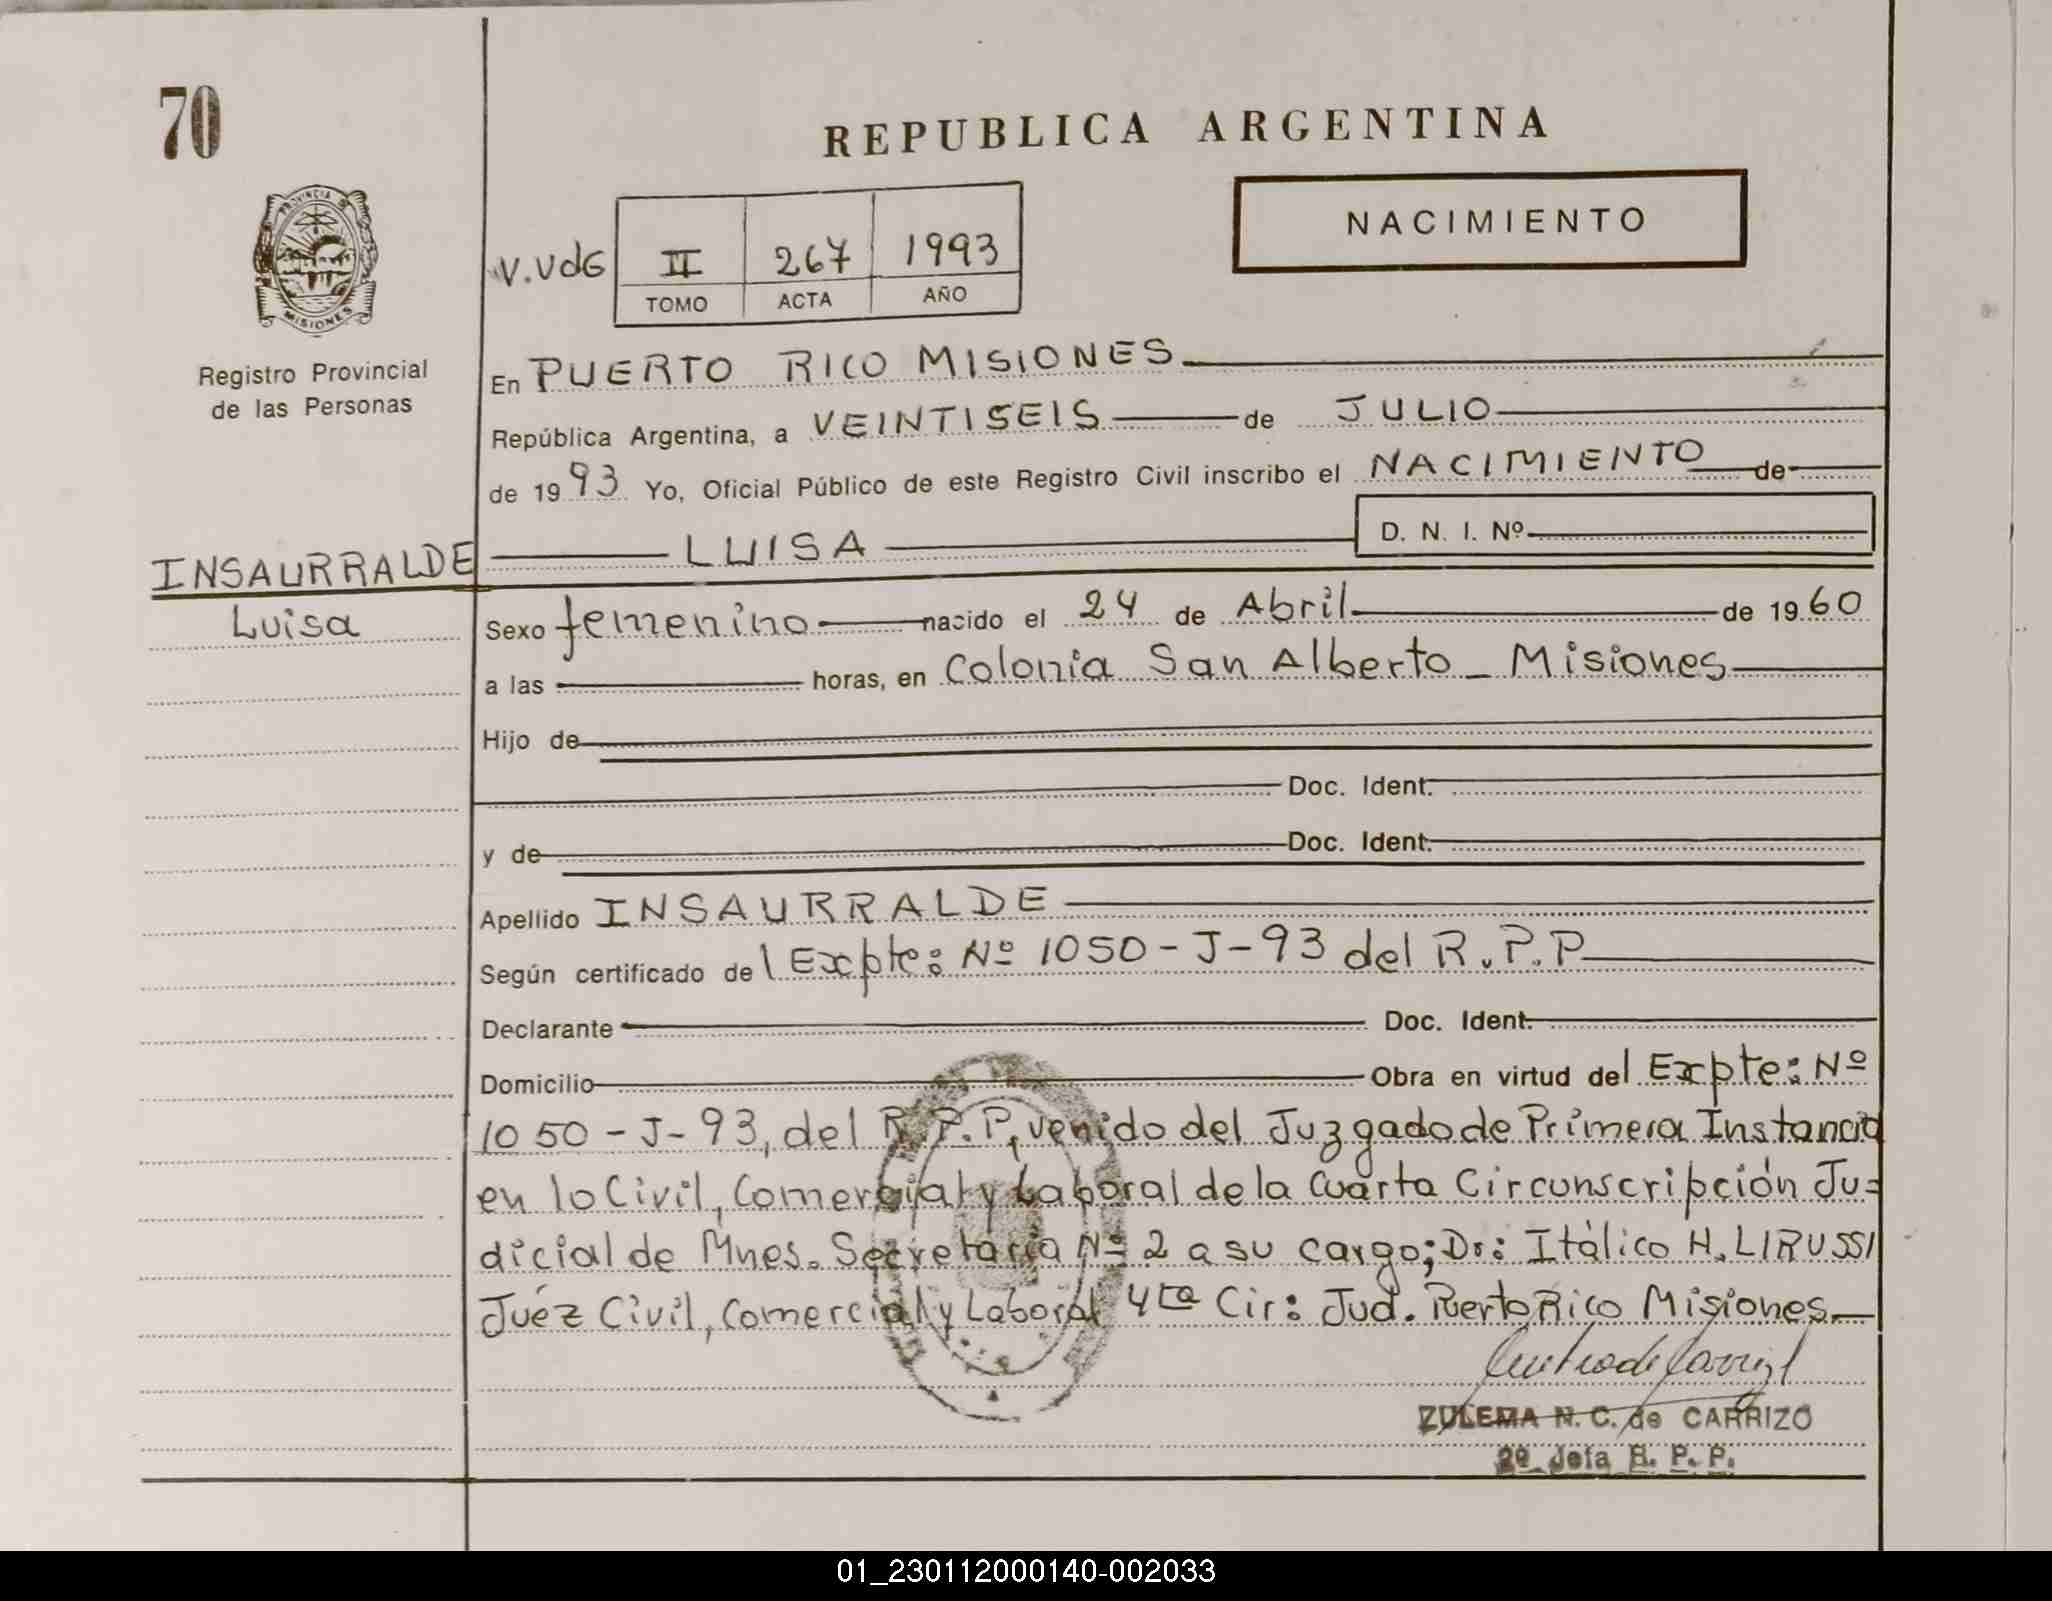 70
REPUBLICA ARGENTINA
NACIMIENTO
PROVINCIA DE
MISIONES
Registro Provincial
de las Personas
V.VdG II 267 1993
TOMO ACTA AÑO
En PUERTO RICO MISIONES
República Argentina, a VEINTISEIS de JULIO
de 1993 Yo, Oficial Público de este Registro Civil inscribo el NACIMIENTO de
LUISA D. N. I. Nº
INSAURRALDE
Luisa
Sexo femenino nacido el 24 de Abril de 1960
a las horas, en Colonia San Alberto - Misiones
Hijo de
Doc. Ident.
y de Doc. Ident.
Apellido INSAURRALDE
Según certificado del Expte: Nº 1050-J-93 del R.P.P
Declarante Doc. Ident.
Domicilio Obra en virtud del Expte: Nº
1050-J-93, del R.P.P, venido del Juzgado de Primera Instancia
en lo Civil, Comercial y Laboral de la Cuarta Circunscripción Ju=
dicial de Mnes. Secretaria Nº 2 a su cargo; Dr: Itálico H. LIRUSSI
Juéz Civil, Comercial y Laboral 4ta Cir: Jud. Puerto Rico Misiones.
ZULEMA N. C. de CARRIZO
2º Jefa R. P. P.
01_230112000140-002033